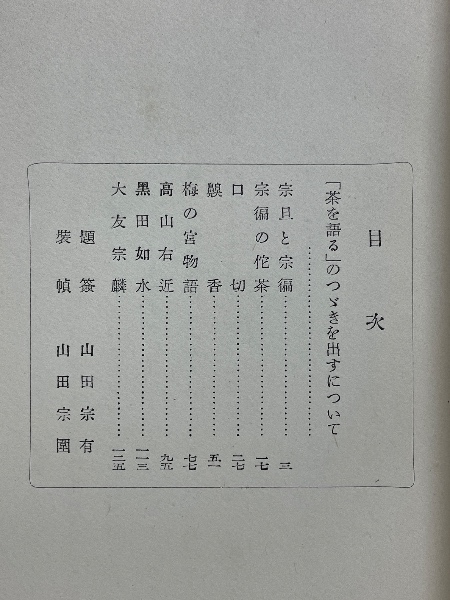 目次
「茶を語る」のつゞきを出すについて
宗旦と宗徧 三
宗徧の侘茶 一七
口切 二七
香 五一
梅の宮物語 七七
高山右近 九五
黒田如水 一一三
大友宗麟 一三五
題簽 山田宗有
装幀 山田宗囲